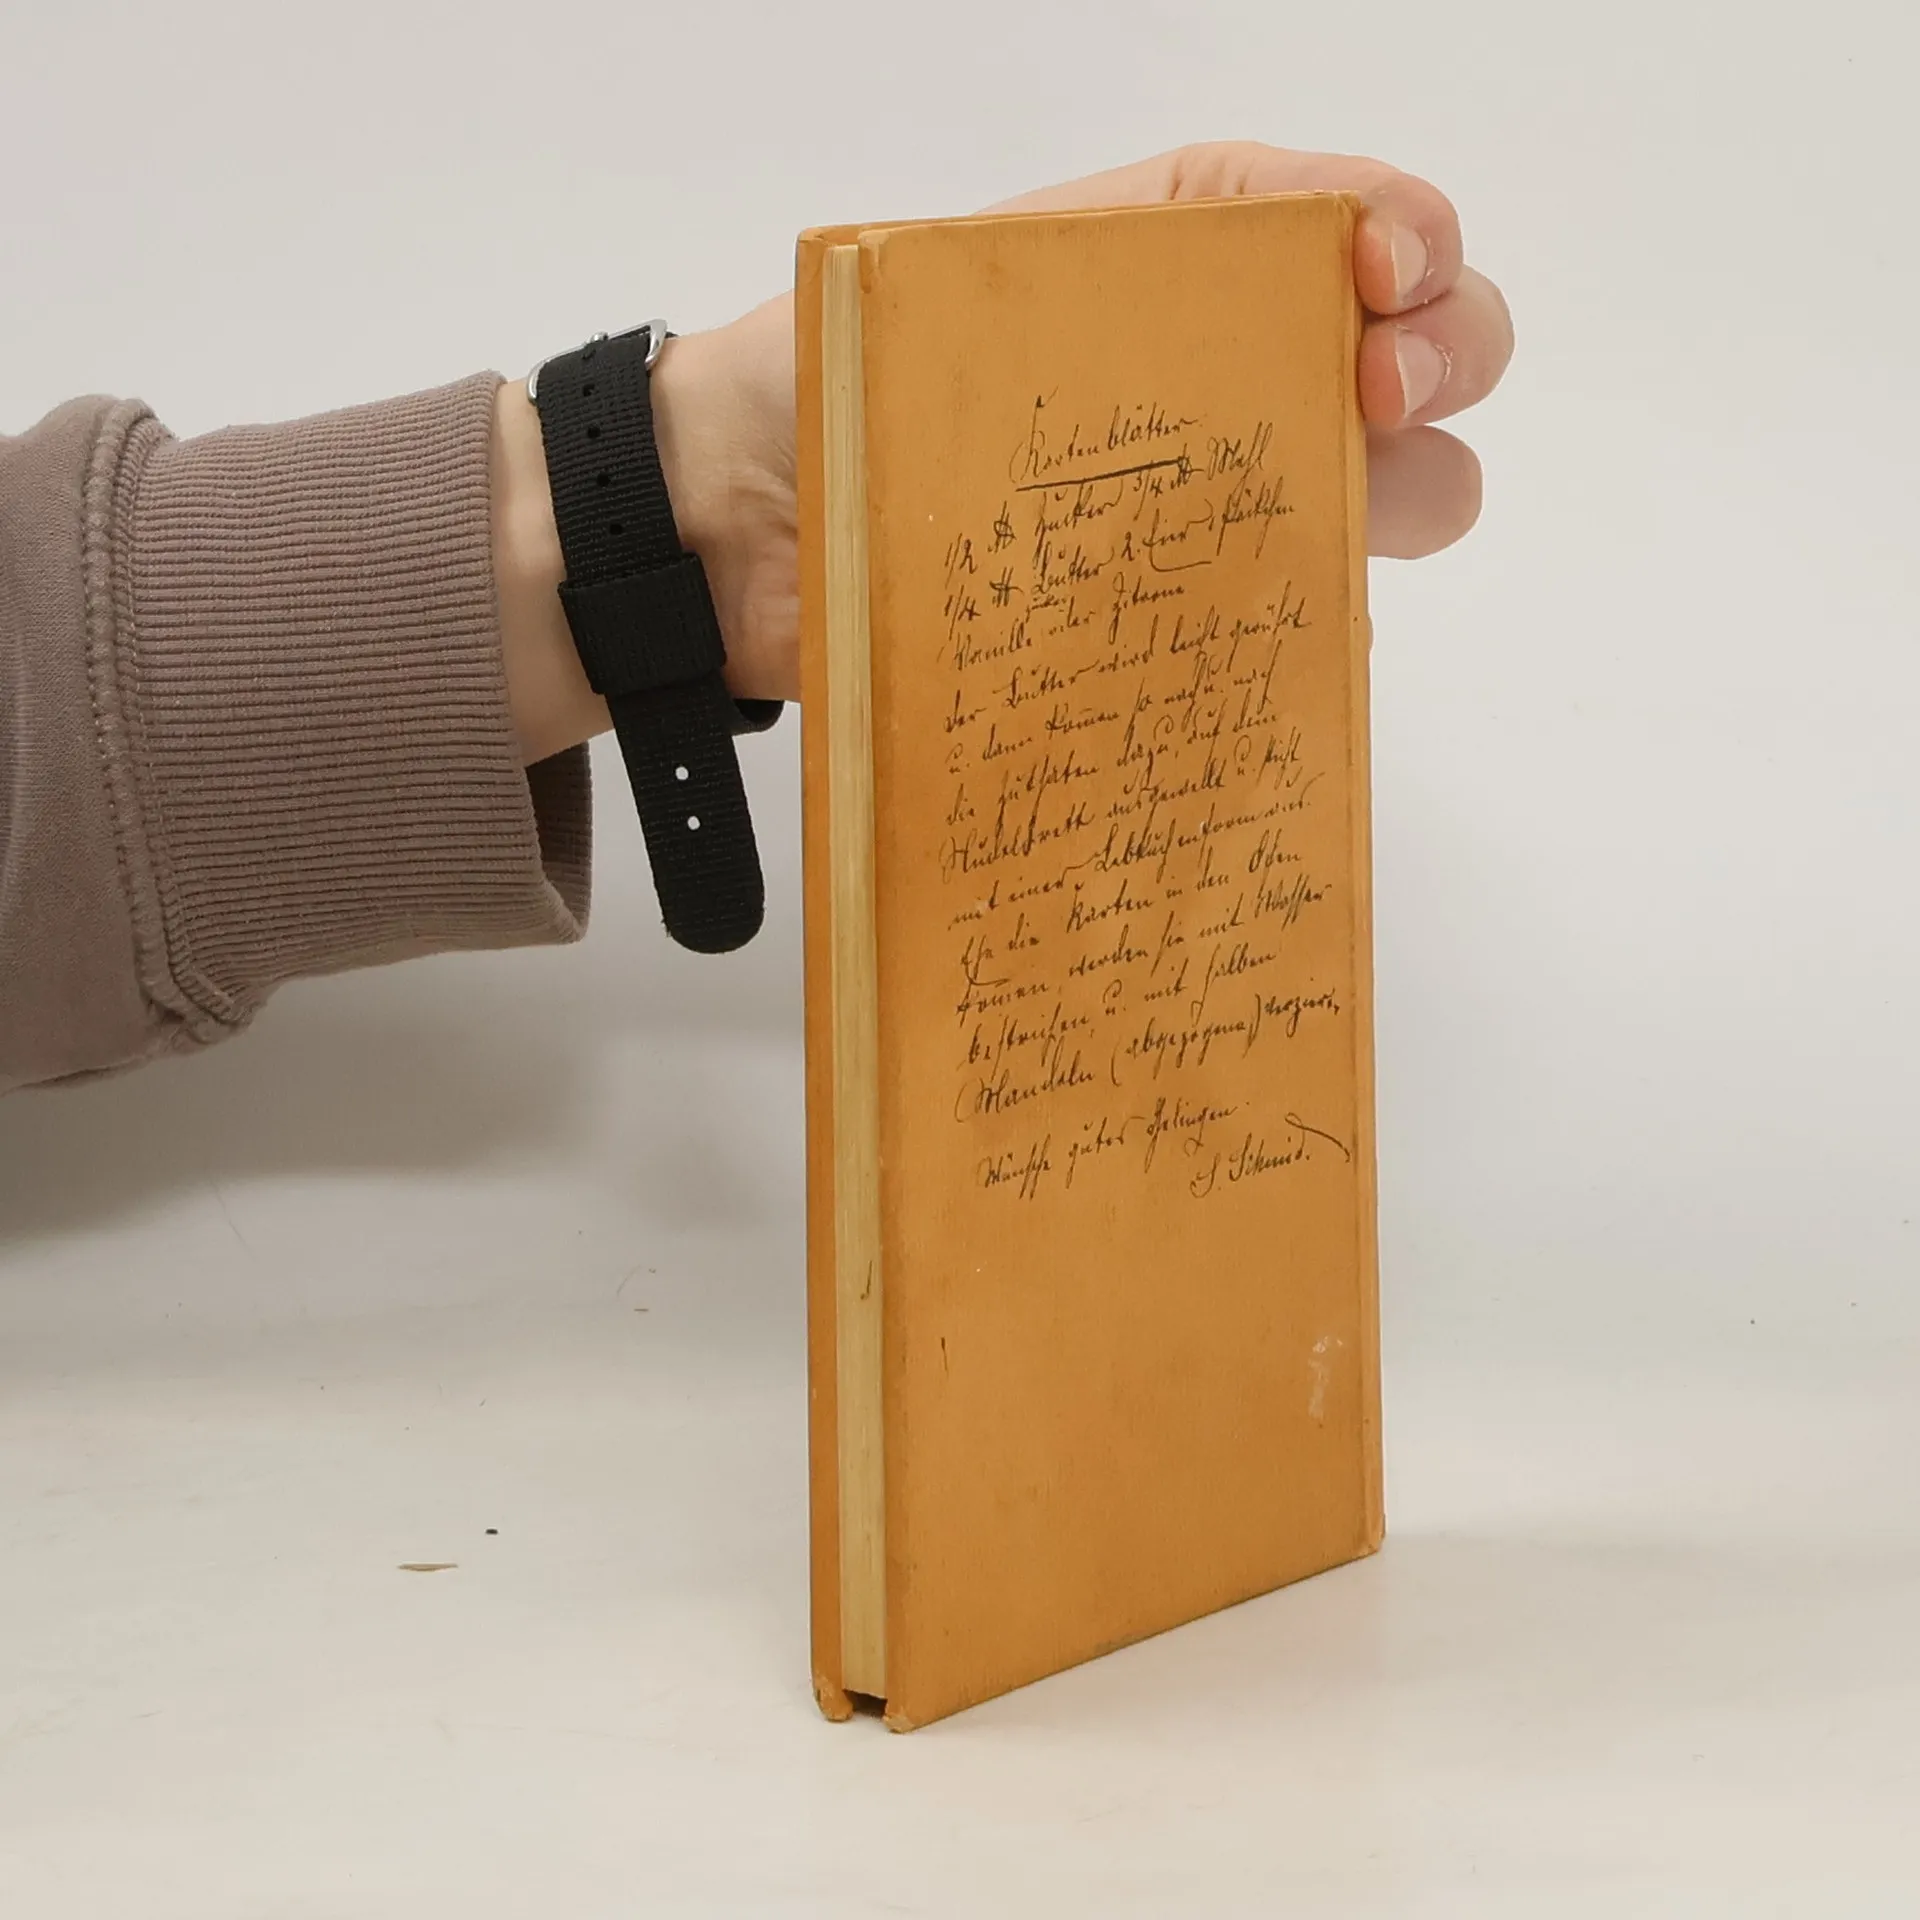 Kartenblätter.
1/2 ℔ Zucker 3/4 ℔ Mehl
1/4 ℔ Butter 2. Eier 1 Päckchen
Vanillezucker oder Zitrone
der Butter wird leicht gerührt
u. dann kom̄en so nach u. nach
die Zuthaten dazu, auf dem
Nudelbrett ausgewellt u. sticht
mit einer Lebkuchenform aus.
Ehe die Karten in den Ofen
kom̄en, werden sie mit Wasser
bestrichen u. mit halben
Mandeln (abgezogene) verziert,
Wünsche gutes Gelingen.
S. Schmid.